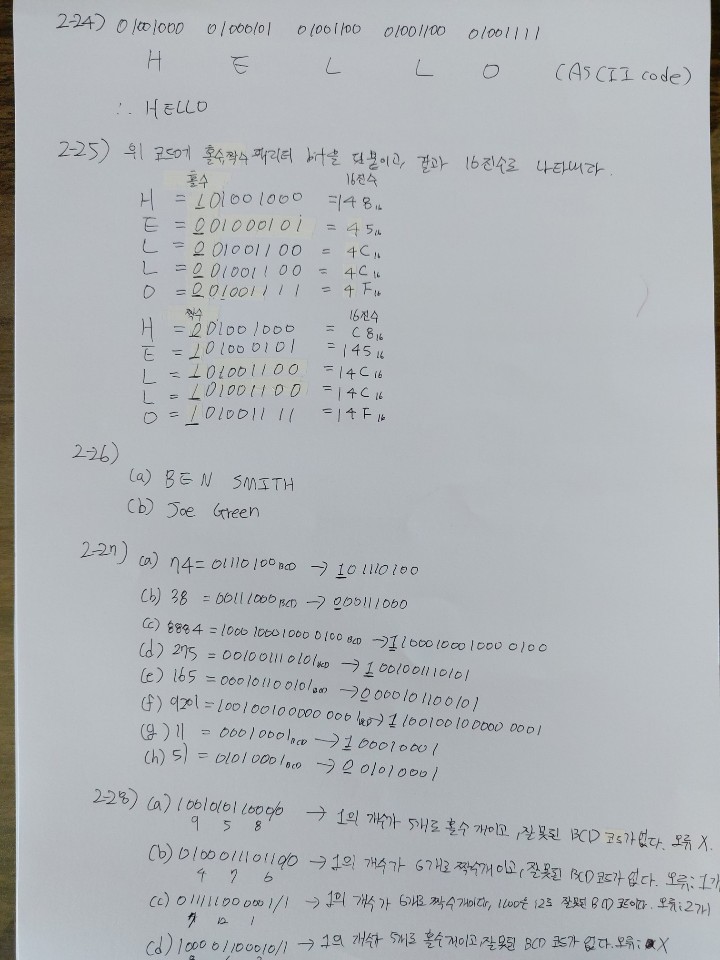 2-24) 01001000 01000101 01001100 01001100 01001111
H E L L O (ASCII code)
∴ HELLO
2-25) 위 코드에 홀수,짝수 패리티 bit를 덧붙이고, 결과 16진수로 나타내라.
홀수 16진수
H = 101001000 = 148₁₆
E = 001000101 = 45₁₆
L = 001001100 = 4C₁₆
L = 001001100 = 4C₁₆
O = 001001111 = 4F₁₆
짝수 16진수
H = 001001000 = C8₁₆
E = 101000101 = 145₁₆
L = 101001100 = 14C₁₆
L = 101001100 = 14C₁₆
O = 101001111 = 14F₁₆
2-26)
(a) BEN SMITH
(b) Joe Green
2-27) (a) 74 = 01110100 BCD → 101110100
(b) 38 = 00111000 BCD → 000111000
(c) 8884 = 1000 1000 1000 0100 BCD → 11000100010000100
(d) 275 = 001001110101 BCD → 1001001110101
(e) 165 = 000101100101 BCD → 0000101100101
(f) 9201 = 1001001000000001 → 11001001000000001
(g) 11 = 00010001 BCD → 100010001
(h) 51 = 01010001 BCD → 001010001
2-28) (a) 1001010110000 → 1의 개수가 5개로 홀수개이고, 잘못된 BCD 코드가 없다. 오류 X.
9 5 8
(b) 0100011101100 → 1의 개수가 6개로 짝수개이고, 잘못된 BCD 코드가 없다. 오류: 1개
4 7 6
(c) 0111110000011 → 1의 개수가 6개로 짝수개이다, 1100은 12로 잘못된 BCD 코드이다. 오류: 2개
7 12 1
(d) 1000011000101 → 1의 개수가 5개로 홀수개이고, 잘못된 BCD 코드가 없다. 오류: X